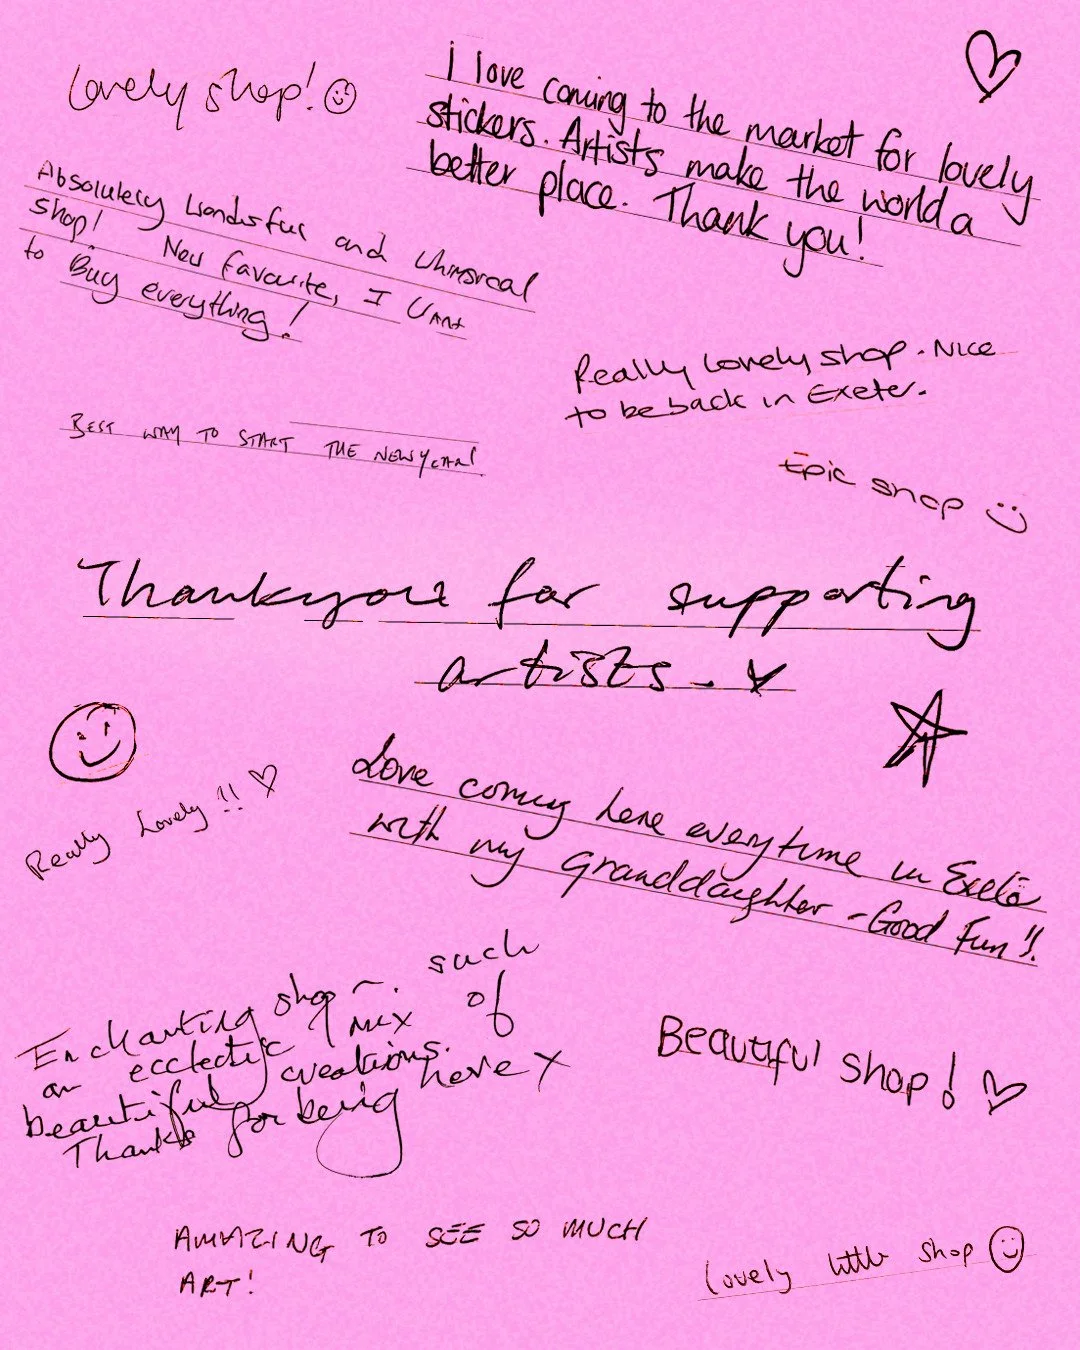 Lovely shop!
i love coming to the market for lovely
stickers. Artists make the world a
better place. Thank you!
Absolutely Wonderful and Whimsical
shop! New favourite, I Want
to Buy everything!
Really lovely shop. Nice
to be back in Exeter.
BEST WAY TO START THE NEW YEAR!
Epic shop
Thankyou for supporting
artists. x
Really Lovely!!
Love coming here everytime in Exeter
with my granddaughter - Good Fun!!
Enchanting shop -. such
an ecclectic mix of
beautiful creations.
Thanks for being here x
Beautiful shop!
AMAZING TO SEE SO MUCH
ART!
lovely little shop